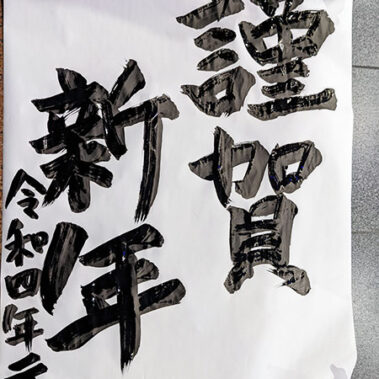 謹賀
新年
令和四年